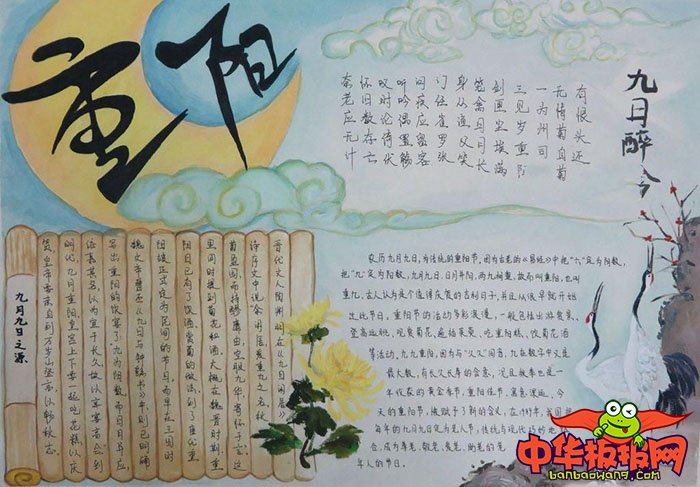 重阳
九日醉吟
有恨头还
无情菊自菊
一为州司
三见岁重阳
剑画尘埃满
笼禽日月长
身从渔父笑
门任雀罗张
问疾应留客
听吟偶置觞
叹时论侍伏
怀旧数存亡
奈老应无计
农历九月九日,为传统的重阳节,因为古老的《易经》中把“六”定为阴数,
把“九”定为阳数,九月九日,日月并阳,两九相重,故而叫重阳,也叫
重九,古人认为是个值得庆贺的吉利日子,并且从很早就开始
过此节日,重阳节的活动多彩浪漫,一般包括出游赏景、
登高远眺、观赏菊花、遍插茱萸、吃重阳糕、饮菊花酒
等活动,九九重阳,因为与“久久”同音,九在数字中又是
最大数,有长久长寿的含意,况且秋季也是一
年收获的黄金季节,重阳佳节,寓意深远,今
天的重阳节,被赋予了新的含义,在1989年,我国把
每年的九月九日定为老人节,传统与现代巧妙地结
合,成为尊老、敬老、爱老、助老的老
年人的节日。
九月九日之源
晋代文人陶渊明在《九日闲居》
诗序文中说“余闲居,爱重九之名。秋
菊盈园,而持醪靡由,空服九华,寄怀于言”。这
里同时提到菊花和酒。大概在魏晋时期,重
阳日已有了饮酒、赏菊的做法。到了唐代重
阳被正式定为民间的节日。而早在三国时
魏文帝曹丕《九日与钟繇书》中,则已明确
写出重阳的饮宴了九为阳数而日月并应,
俗嘉其名,以为宜于长久,故以享宴高会到
明代,九月重阳,皇宫上下要一起吃花糕以庆
贺,皇帝要亲自到万岁山登高,以畅秋志
中华板报网
banbaowang.com